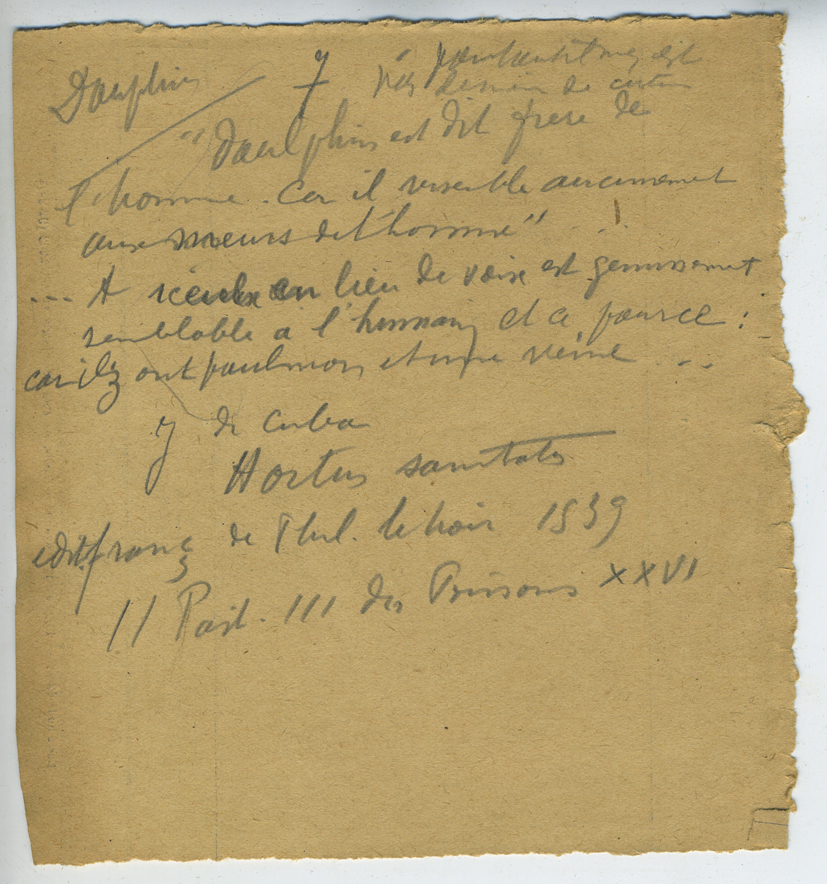 Dauphin
"Daulphin est dit frere de
l'homme. Car il resemble aucunement
aux meurs de l'homme" ... !
... A lieu de voix est gemissement
semblable a l'humain et a pource :
car ilz ont paulmon et une veine ...
J de Cuba
Hortus sanitatis
edit. franç de Phil. le Noir 1539
II Part. III des Poissons XXVI